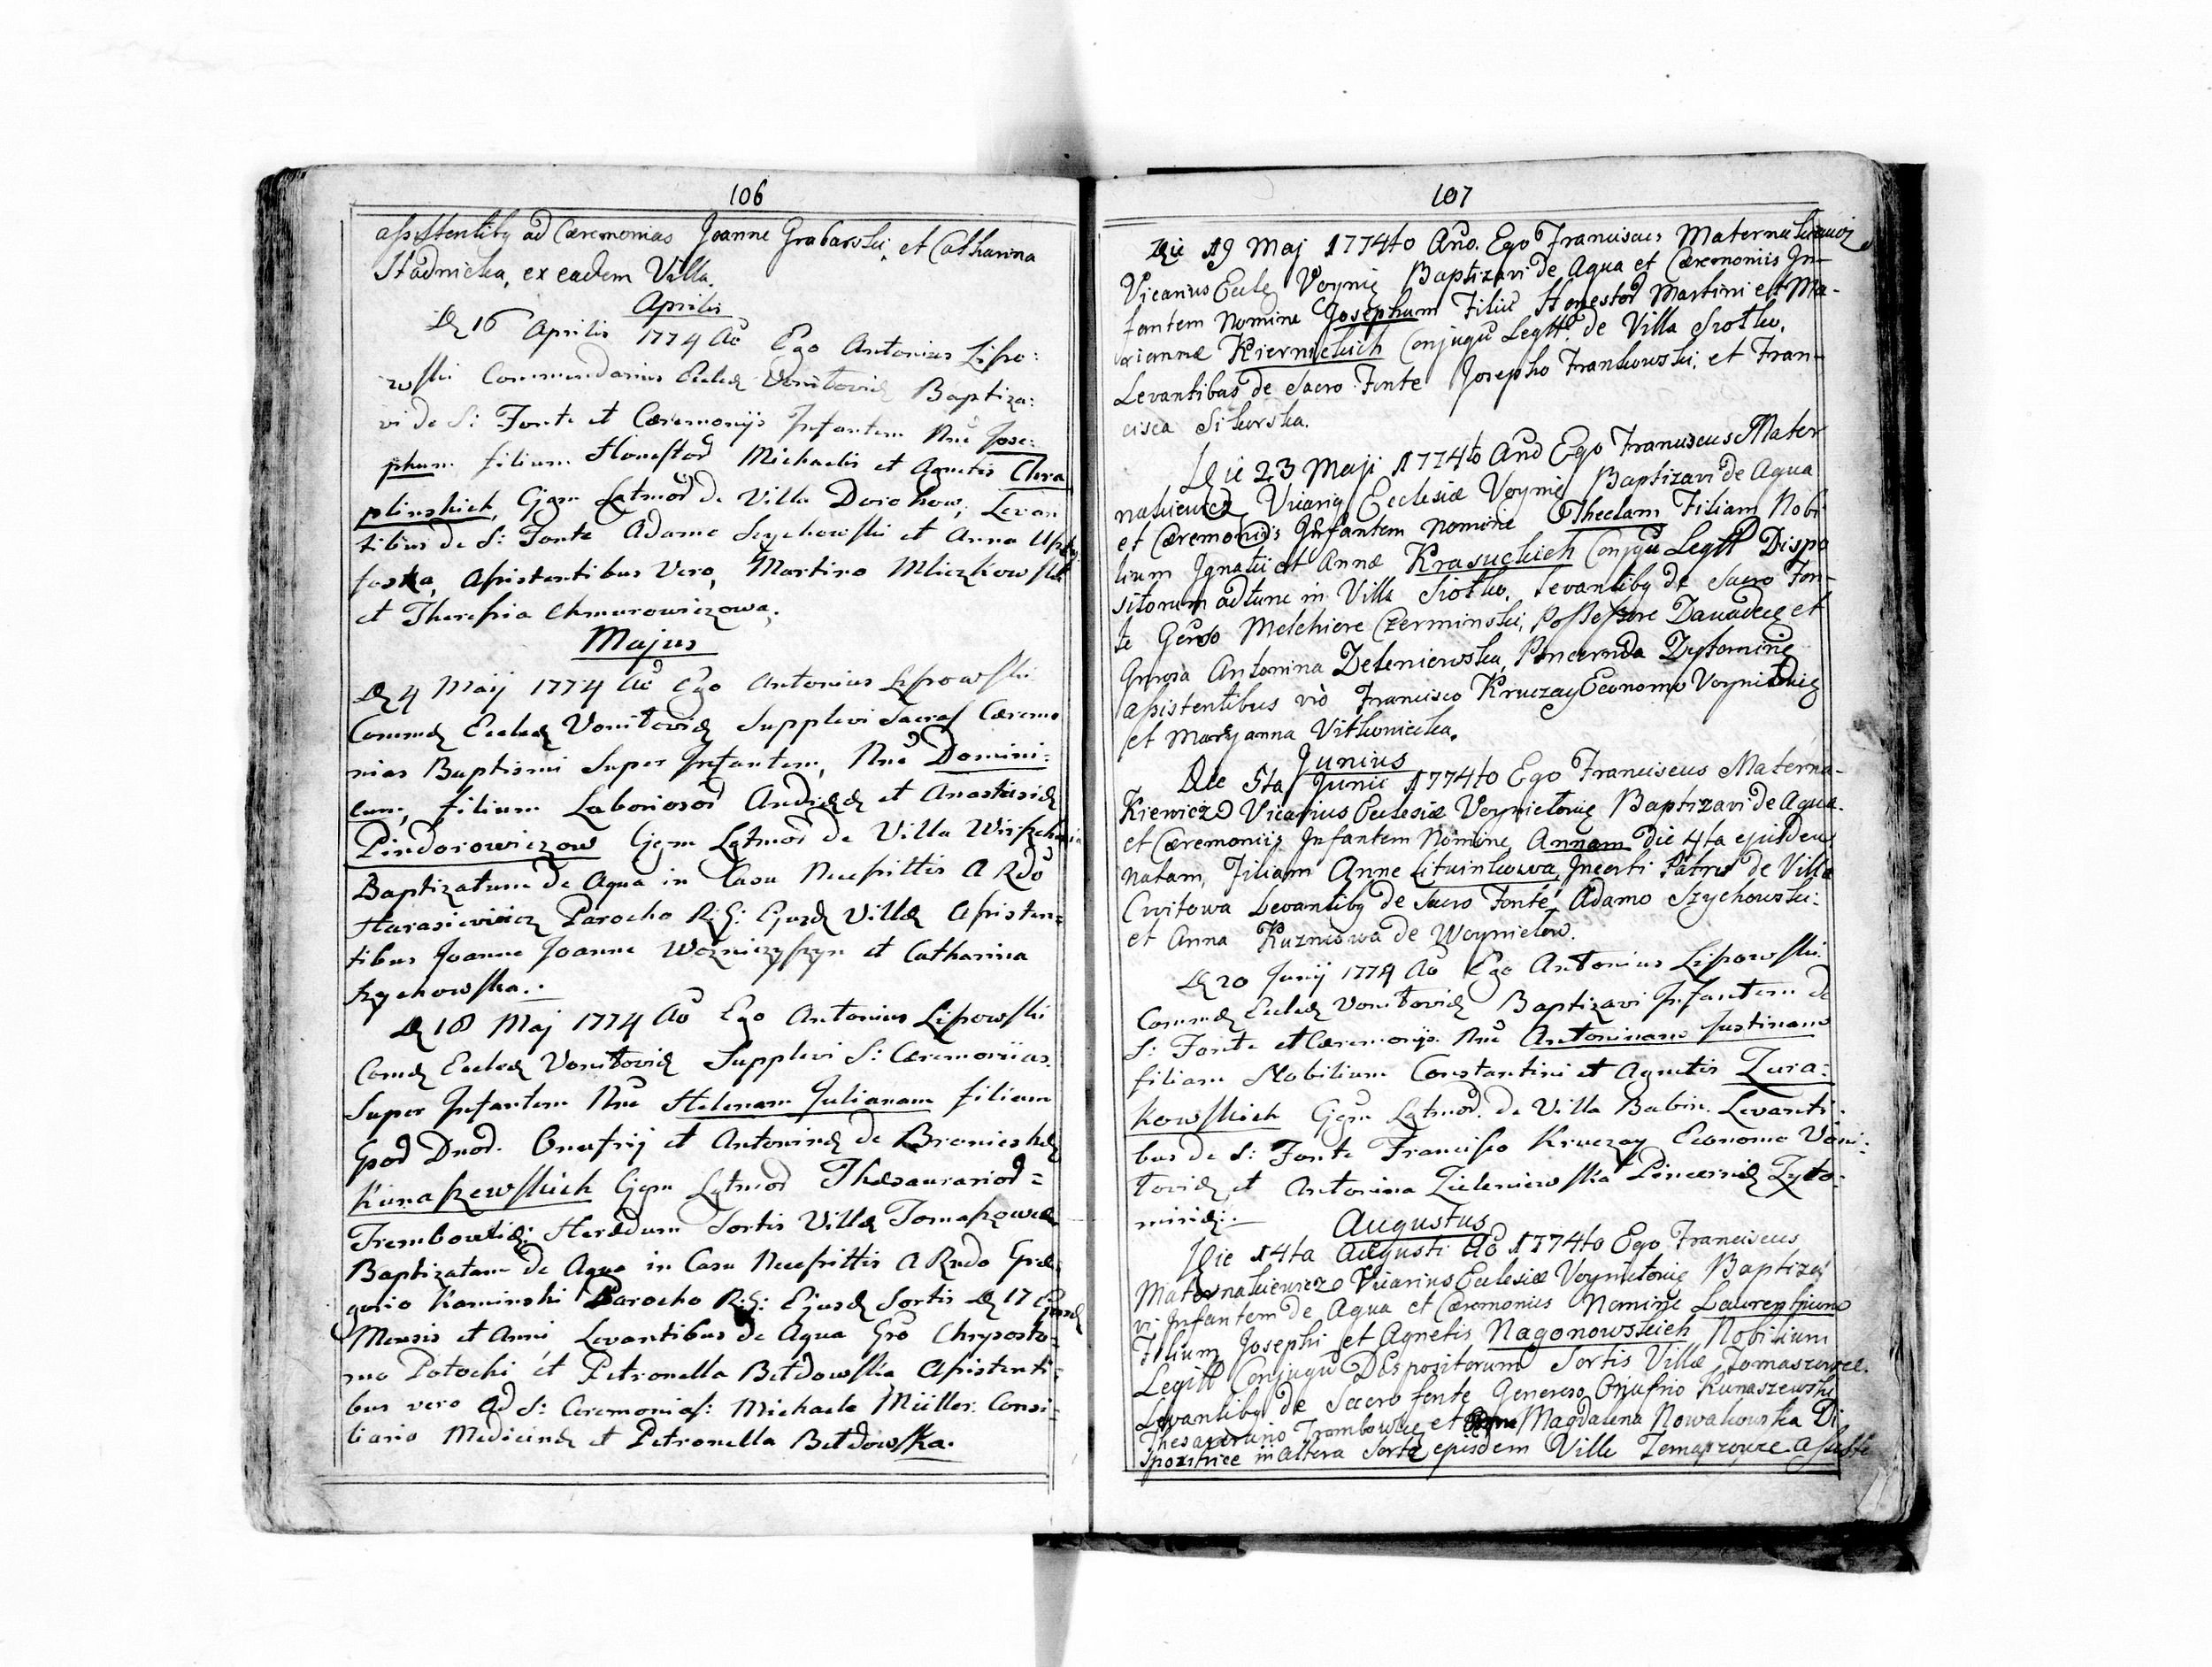 106
assistentibq ad Cæremonias Joanne Grabarski, et Catharina
Stadnicka, ex eadem Villa.
Aprilis
D 16 Aprilis 1774 Ao Ego Antonius Lipo:
wski Commendarius Eccl Baptiza:
vi de S: Fonte et Cæremonijs Infantem Nne Jose:
phum filium Honestor Michaelis et Agnetis Chra
plinskich, Cjgm Lgtmor de Villa Dorohow, Levan
tibus de S: Fonte Adamo Szychowski et Anna
Assistentibus Vero, Martino Mliczkowski
et Theresia Chmurowiczowa.
Majus
D 4 Maij 1774 Ao Ego Antonius Lipowski
Commd Eccled Vonitovid Supplevi Sacras Cæremo
nias Baptismi Super Infantem, Nne Domini:
cum, filium Laboriosor Andr et Anastasid
Piedorowiczow Cjgm Lgtmor de Villa
Baptizatum de Aqua in Casu Necessittis A Rdo
Harasiewicz Parocho R: G: Ejusd Villæ Assisten:
tibus Joanne Joanne Wozniczyszyn et Catharina
Szychowska.
D 18 Maj 1774 Ao Ego Antonius Lipowski
Comd Eccled Vonitovid Supplevi S: Cæremonias
Super Infantem Nne Helenam Julianam filiam
Gnod Dnod. Onufrij et Antonind de
Kunaszewskich Cjgm Lgtmod Thesaurariod =
Trembowlid: Hæredum Sortis Villæ Tomaszowce
Baptizatam de Aqua in Casu Necessittis A Rndo Gre
gorio Kaminski Parocho R: G: Ejusd Sortis D 17 Ejusd
Mensis et Anni Levantibus de Aqua Gro Chrysosto:
mo Potocki et Petronella Betdowska Assistenti:
bus vero Ad S: Ceremonias: Michaele Müller Consi:
liario Medicind et Petronella Betdowska.
107
Die 19 Maj 1774to Ano. Ego Franciscus Maternakiewicz
Vicarius Eccle Voynie Baptizavi de Aqua et Cæremoniis In-
fantem Nomine Josephum Filiu Honestor Martini et Ma-
riannæ Kiernickich Conjugu Legtt. de Villa Siołko.
Levantibus de Sacro Fonte Josepho Frankowski, et Fran-
cisca Sikorska.
Die 23 Maji 1774to Ano Ego Franciscus Mater
nakiewicz Vicariq Ecclesiæ Voynie Baptizavi de Aqua
et Cæremoniis Infantem Nomine Theclam Filiam Nobi
lium Ignatii et Annæ Krasuckich Conjgu Legtt Dispo
sitorum adtunc in Villa Siołko. Levantibq de Sacro Fon-
te Geńso Melchiore Czerminski, Possessore et
Antonina Zeleniewska, Pincernida Zytominie
assistentibus vio Francisco Kruczay Economo Voynitovie
et Maryanna Vitkoniecka.
Junius
Die 5ta Junii 1774to Ego Franciscus Materna-
Kiewicz Vicarius Ecclesiæ Voynietovie Baptizavi de Aqua.
et Cæremoniis Infantem Nomine Annam die 4ta ejusdem
natam, Filiam Anne Lituinkowa, Incerti Patris de Villa
Cwitowa Levantibq de Sacro Fonte Adamo Szychowski:
et Anna Kuzniowa de Woynielow.
D 20 Junij 1774 Ao Ego Antonius Lipowski
Commd Eccled Vonitovid Baptizavi Infantem de
S: Fonte et Cæremonijs Nne Antoninam Justinam
filiam Nobilium Constantini et Agnetis Zura:
kowskich Cjgm Lgtmod. de Villa Babin. Levanti:
bus de S: Fonte Francisco Kruczay Economo Voni:
tovid et Antonina Zieleniewska Pincernid Zyto:
mirid:
Augustus
Die 14ta Augusti Ao 1774to Ego Franciscus
Maternakiewicz Vicarius Ecclesiæ Voynietovie Baptiza
vi Infantem de Aqua et Cæremoniis Nomine Laurentium
Filium Josephi et Agnetis Nagonowskich Nobilium
Legitt Conjugu Dispositorum Sortis Villæ Tomaszowce.
Levantibq de Sacro fonte Generoso Onufrio Kunaszewski
Thesaurario Trembowlie et Magdalena Nowakowska Di
spozitrice in altera Sorte ejusdem Ville Tomaszowce. Assiste